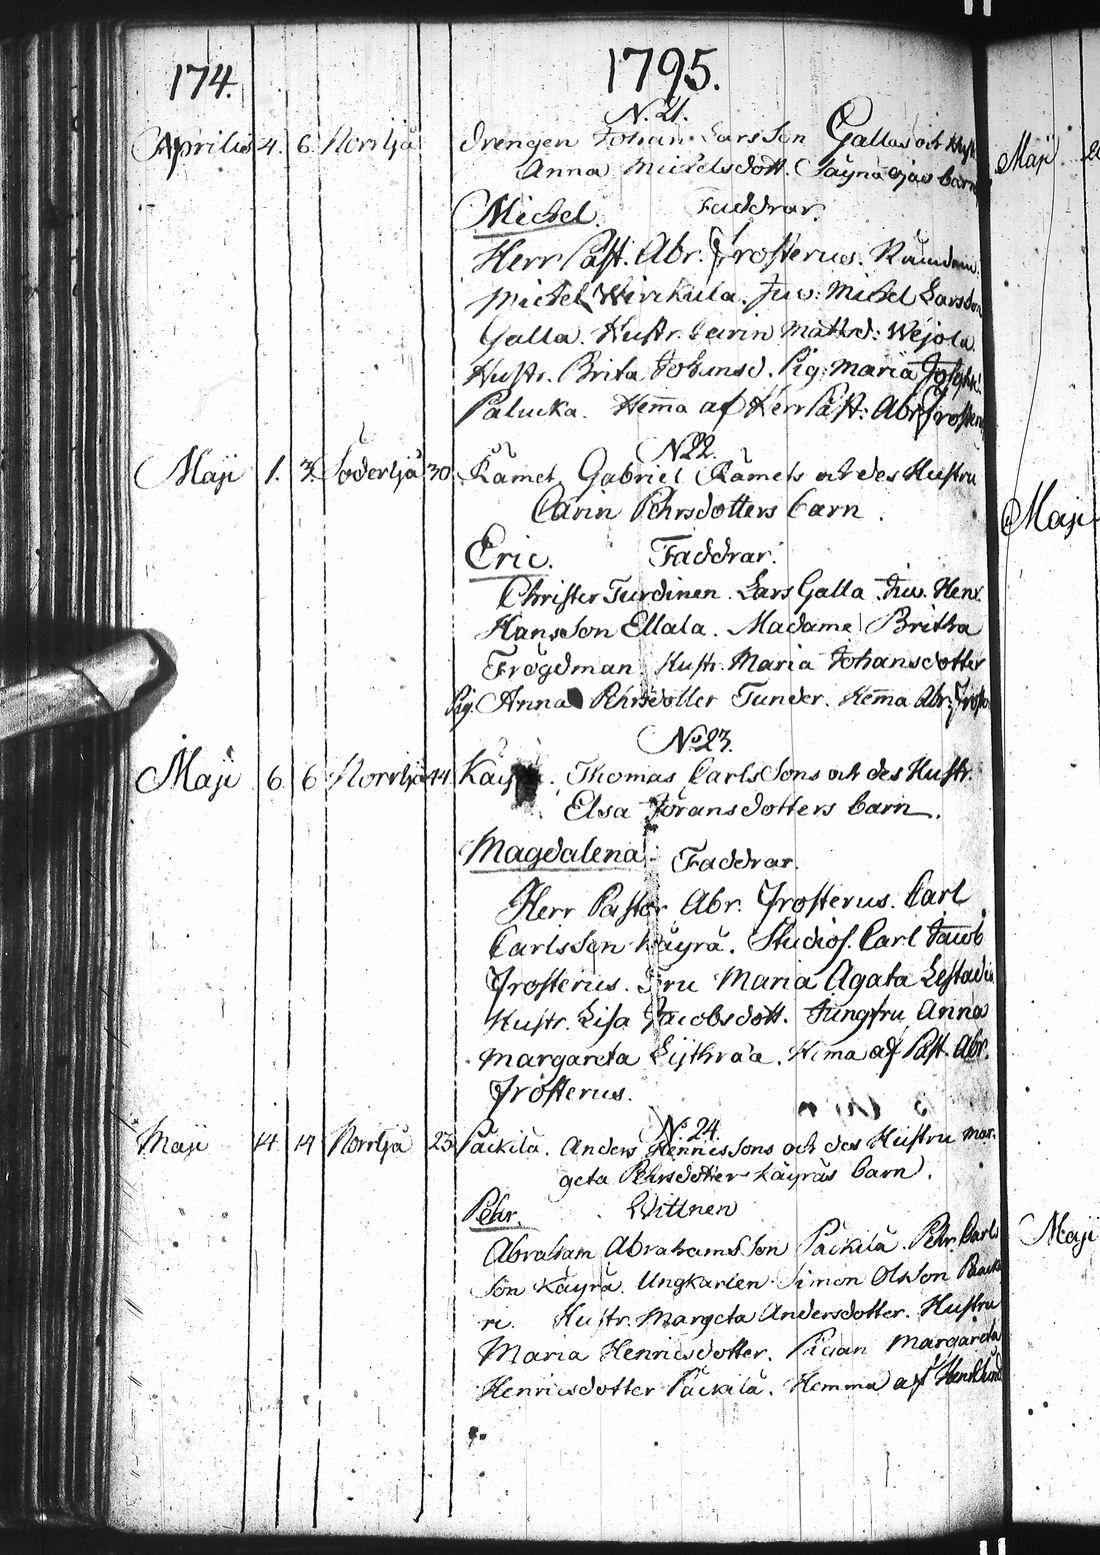 174. 1795.
N. 21.
Aprilis 4. 6 Norrljä Drengen Johan Larsson Gallas och Hust.
Anna Michelsdott. barn
Michel. Faddrar.
Herr Past. Abr. Frosterus.
Michel Wirckula. Juv: Michel Larsson
Galla. Hustr. Carin Mattsd: Wejola.
Hustr. Brita Johansd. Pig: Maria Joseph:
Palucka. Hema af Herr Past: Abr Frosterus
N. 22.
Maji 1. 3. Söderljä 30 Rämet, Gabriel Rämets och des Hustru
Carin Pehrsdotters barn.
Eric. Faddrar.
Christer Turdinen. Lars Galla. Juv. Henr.
Hansson Ellala. Madame Britha
Frögdman. Hustr. Maria Johansdotter
Pig. Anna Pehrsdotter Tunder. Hema Abr. Frost.
No 23.
Maji 6 6 Norrljä 44 Thomas Carlssons och des Hustr.
Elsa Göransdotters barn.
Magdalena. Faddrar.
Herr Pastor Abr. Frosterus. Carl
Carlsson Käyrä. Studios. Carl Jacob
Frosterus. Fru Maria Agata Lestadia
Hustr. Lisa Jacobsdott. Jungfru Anna
Margareta Lythræa. Hema af Past. Abr.
Frosterus.
N. 24.
Maji 14 14 Norrljä 25 Päckilä. Anders Hennssons och des Hustru Mar-
geta Pehrsdotter Käyräs barn.
Pehr. Wittnen
Abraham Abrahamsson Päckilä. Pehr Carls
son Käyrä. Ungkarlen Simon Olsson
ri. Hustr. Margeta Andersdotter. Hustru
Maria Henricsdotter. Pigan Margareta
Henricsdotter Päckilä. Hemma af
Maji
Maji
Maji